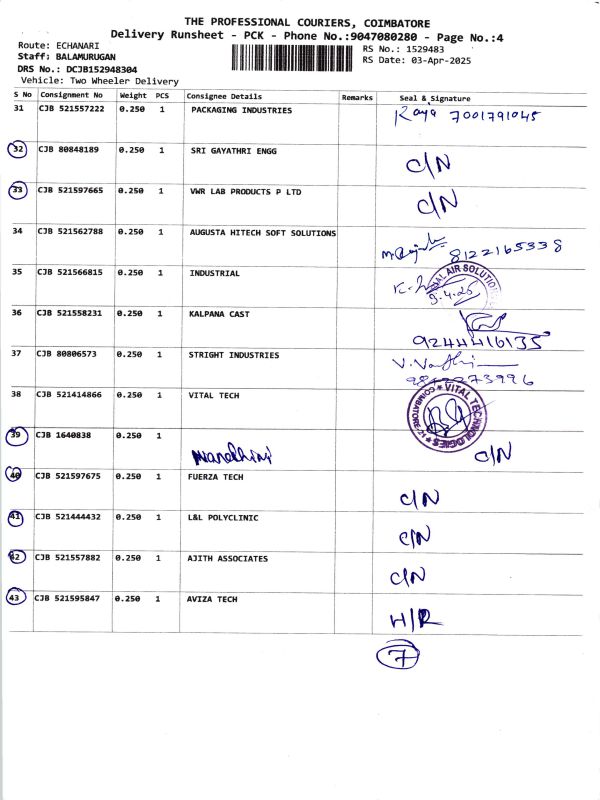 THE PROFESSIONAL COURIERS, COIMBATORE
Delivery Runsheet - PCK - Phone No.:9047080280 - Page No.:4
Route: ECHANARI
RS No.: 1529483
Staff: BALAMURUGAN
RS Date: 03-Apr-2025
DRS No.: DCJB152948304
Vehicle: Two Wheeler Delivery
S No Consignment No Weight PCS Consignee Details Remarks Seal & Signature
31 CJB 521557222 0.250 1 PACKAGING INDUSTRIES
7001791045
32 CJB 80848189 0.250 1 SRI GAYATHRI ENGG
C/N
33 CJB 521597665 0.250 1 VWR LAB PRODUCTS P LTD
C/N
34 CJB 521562788 0.250 1 AUGUSTA HITECH SOFT SOLUTIONS
8122165338
35 CJB 521566815 0.250 1 INDUSTRIAL
AIR SOLUTION
9.4.25
36 CJB 521558231 0.250 1 KALPANA CAST
9244416135
37 CJB 80806573 0.250 1 STRIGHT INDUSTRIES
38 CJB 521414866 0.250 1 VITAL TECH
VITAL TECHNOLOGIES
COIMBATORE-21
39 CJB 1640838 0.250 1
C/N
40 CJB 521597675 0.250 1 FUERZA TECH
C/N
41 CJB 521444432 0.250 1 L&L POLYCLINIC
C/N
42 CJB 521557882 0.250 1 AJITH ASSOCIATES
C/N
43 CJB 521595847 0.250 1 AVIZA TECH
H/R
7